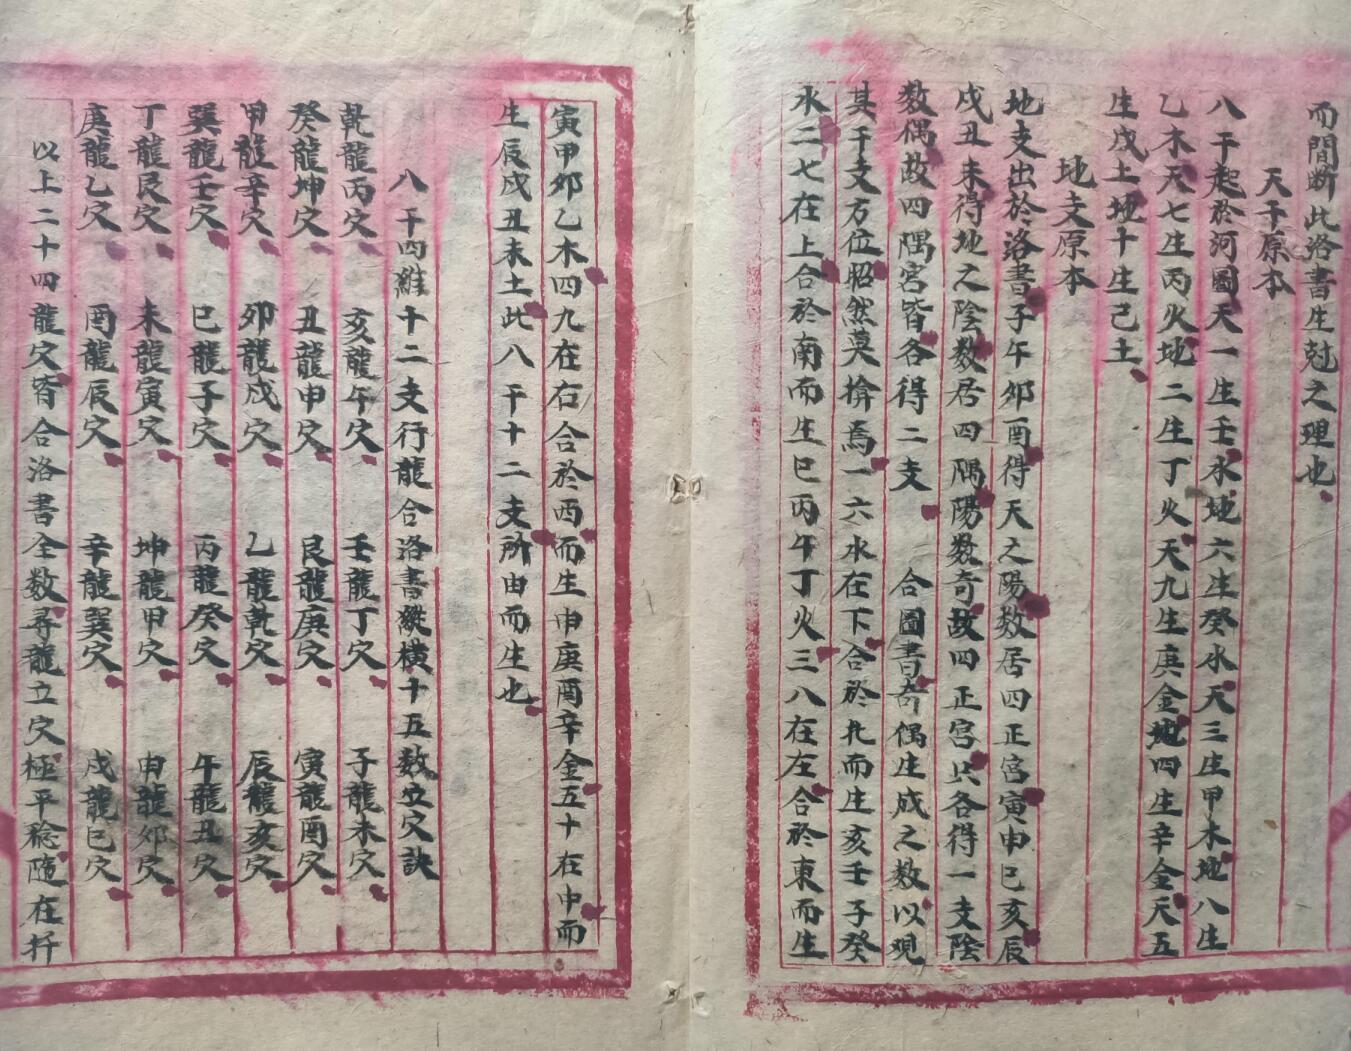 而間斷此洛書生尅之理也
天干原本
八干起於河圖天一生壬水地六生癸水天三生甲木地八生
乙木天七生丙火地二生丁火天九生庚金地四生辛金天五
生戌土地十生己土
地支原本
地支出於洛書子午卯酉得天之陽数居四正宮寅申巳亥辰
戌丑未得地之陰数居四隅陽数奇故四正宮共各得一支陰
数偶故四隅宮皆各得二支 合圖書奇偶生成之数以观
其干支方位昭然莫揜焉一六水在下合於北而生亥壬子癸
水二七在上合於南而生巳丙午丁火三八在左合於東而生
寅甲卯乙木四九在右合於西而生申庚酉辛金五十在中而
生辰戌丑未土此八干十二支所由而生也
八干四維十二支行龍合洛書縱橫十五数立穴訣
乾龍丙穴 亥龍午穴 壬龍丁穴 子龍未穴
癸龍坤穴 丑龍申穴 艮龍庚穴 寅龍酉穴
甲龍辛穴 卯龍戌穴 乙龍乾穴 辰龍亥穴
巽龍壬穴 巳龍子穴 丙龍癸穴 午龍丑穴
丁龍艮穴 未龍寅穴 坤龍甲穴 申龍卯穴
庚龍乙穴 酉龍辰穴 辛龍巽穴 戌龍巳穴
以上二十四龍穴皆合洛書全数尋龍立穴極平稳隨在扦